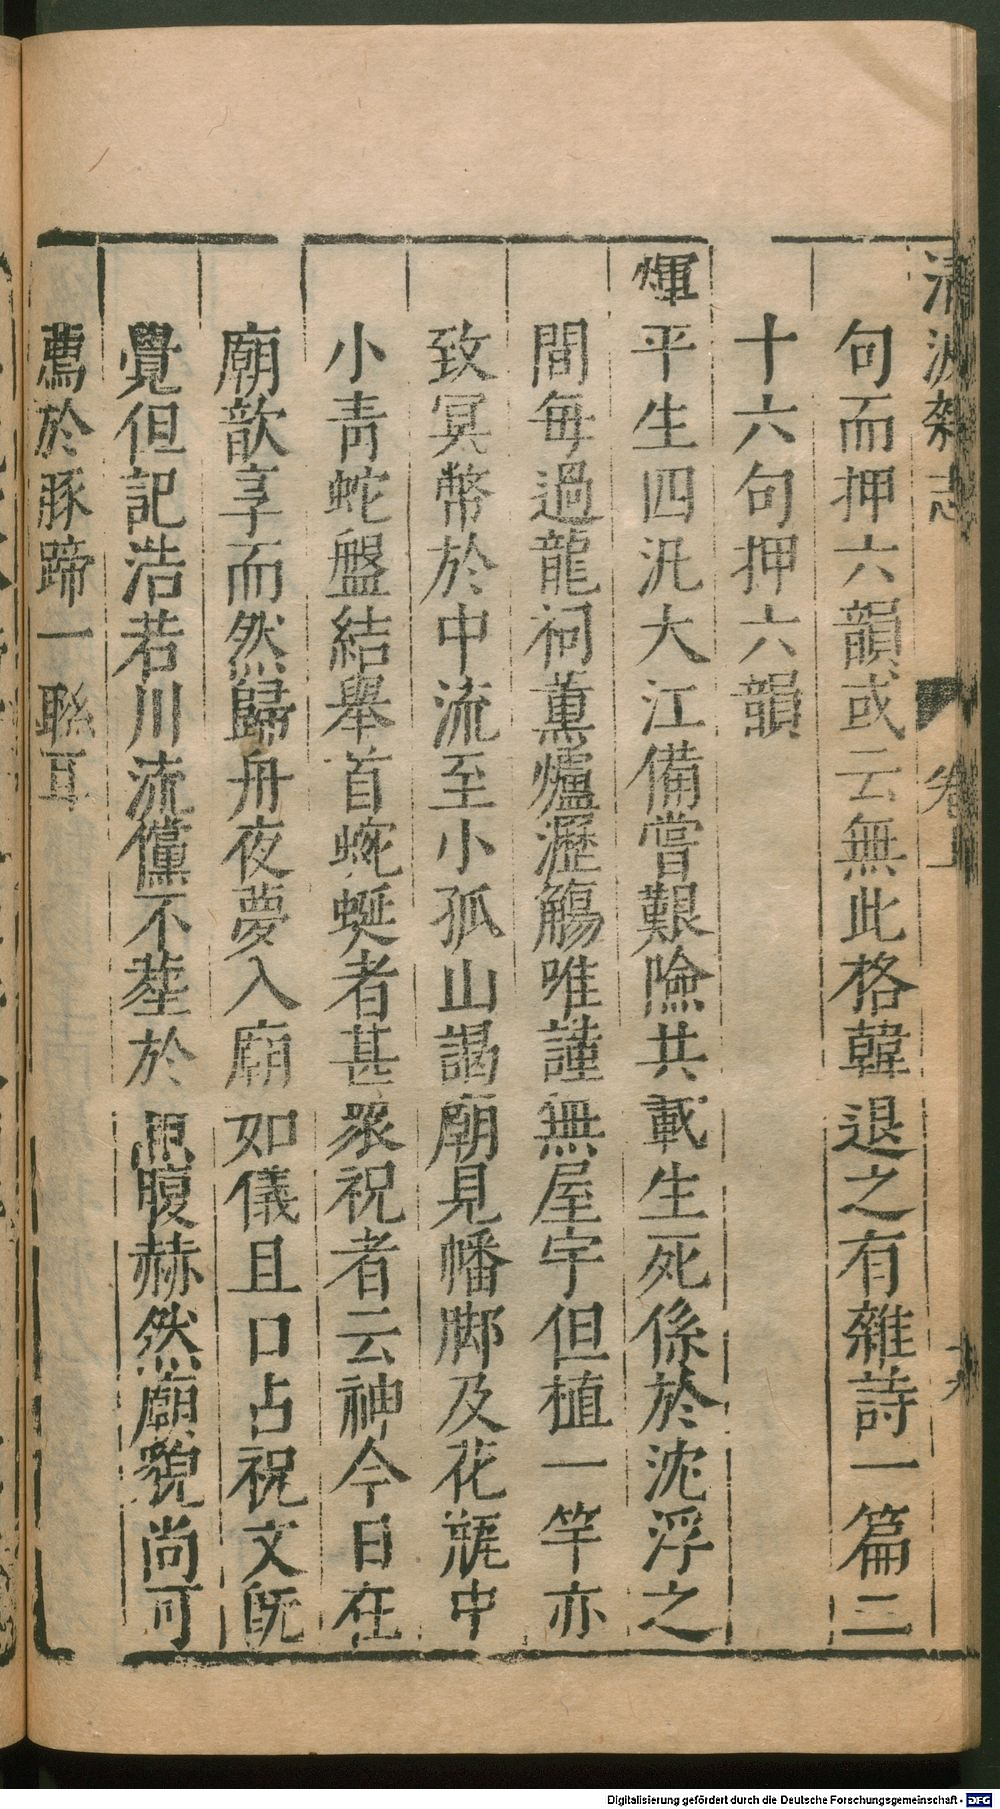 清波雜志
卷上
句而押六韻或云無此格韓退之有雜詩一篇二
十六句押六韻
煇平生四汎大江備嘗艱險共載生死係於沈浮之
間每過龍祠薰爐瀝觴唯謹無屋宇但植一竿亦
致冥幣於中流至小孤山謁廟見幡脚及花瓶中
小青蛇盤結舉首蜿蜒者甚衆祝者云神今日在
廟歆享而然歸舟夜夢入廟如儀且口占祝文既
覺但記浩若川流儻不葬於魚腹赫然廟貌尚可
薦於豚蹄一聯耳
Digitalisierung gefördert durch die Deutsche Forschungsgemeinschaft - DFG